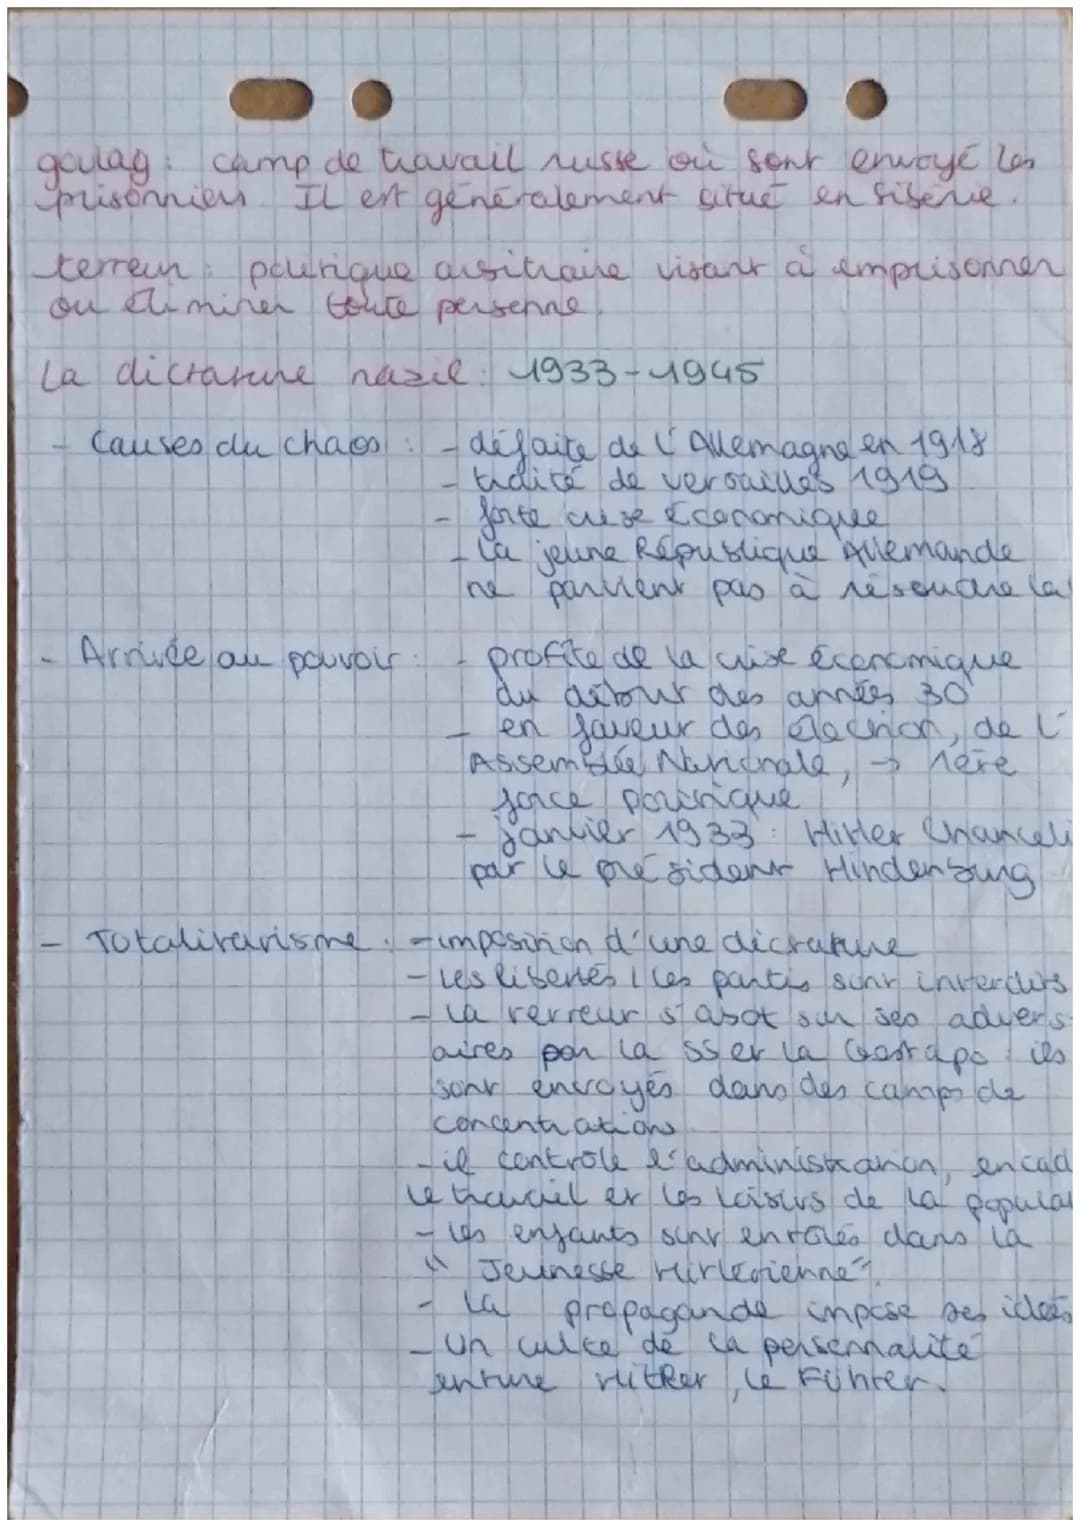 goulag : camp de travail russe où sont envoyé les
prisonniers. Il est généralement situé en Sibérie.
terreur : politique arbitraire visant à emprisonner
ou éliminer toute personne.
La dictature nazie : 1933-1945
- Causes du chaos : - défaite de l'Allemagne en 1918
- traité de versailles 1919
- forte crise économique
- La jeune République Allemande
ne parvient pas à résoudre la
- Arrivée au pouvoir : - profite de la crise économique
du début des années 30
- en faveur des élection, de l'
Assemblée Nationale, → 1ère
force politique
- janvier 1933 : Hitler Chanceli
par le président Hindenburg
- Totalitarisme : - imposition d'une dictature
- Les libertés / les partis sont interdits
- La terreur s'abat sur ses advers-
aires par la SS et la Gestapo : ils
sont envoyés dans des camps de
concentrations
- il contrôle l'administration, encad
le travail et les loisirs de la popula
- les enfants sont enrolés dans la
" Jeunesse Hitlérienne".
- La propagande impose ses idées
- Un culte de la personnalité
enture Hitler, le Führer.